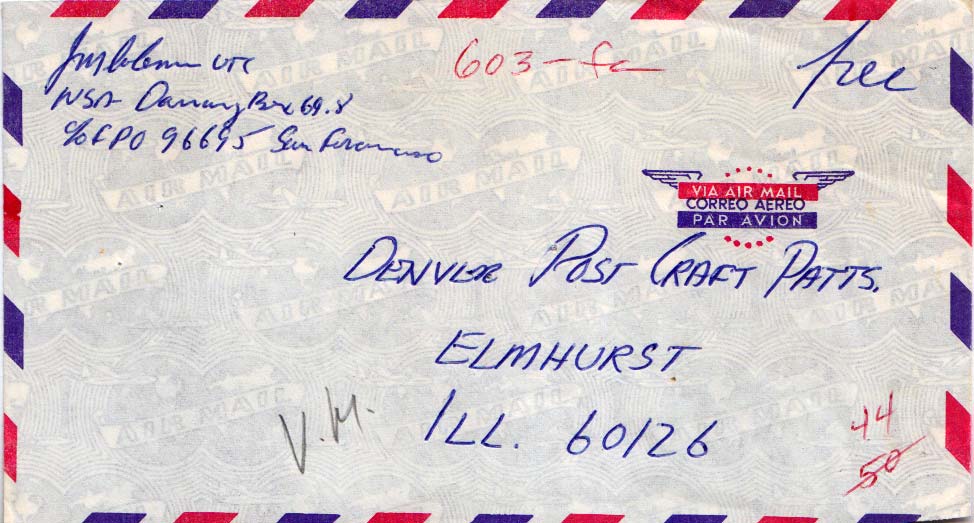 UTC
603-fc
free
NSA Danang Box 69.8
c/o FPO 96695 San Francisco
VIA AIR MAIL
CORREO AEREO
PAR AVION
DENVER POST CRAFT PATTS.
ELMHURST
ILL. 60126
V.M.
44
50